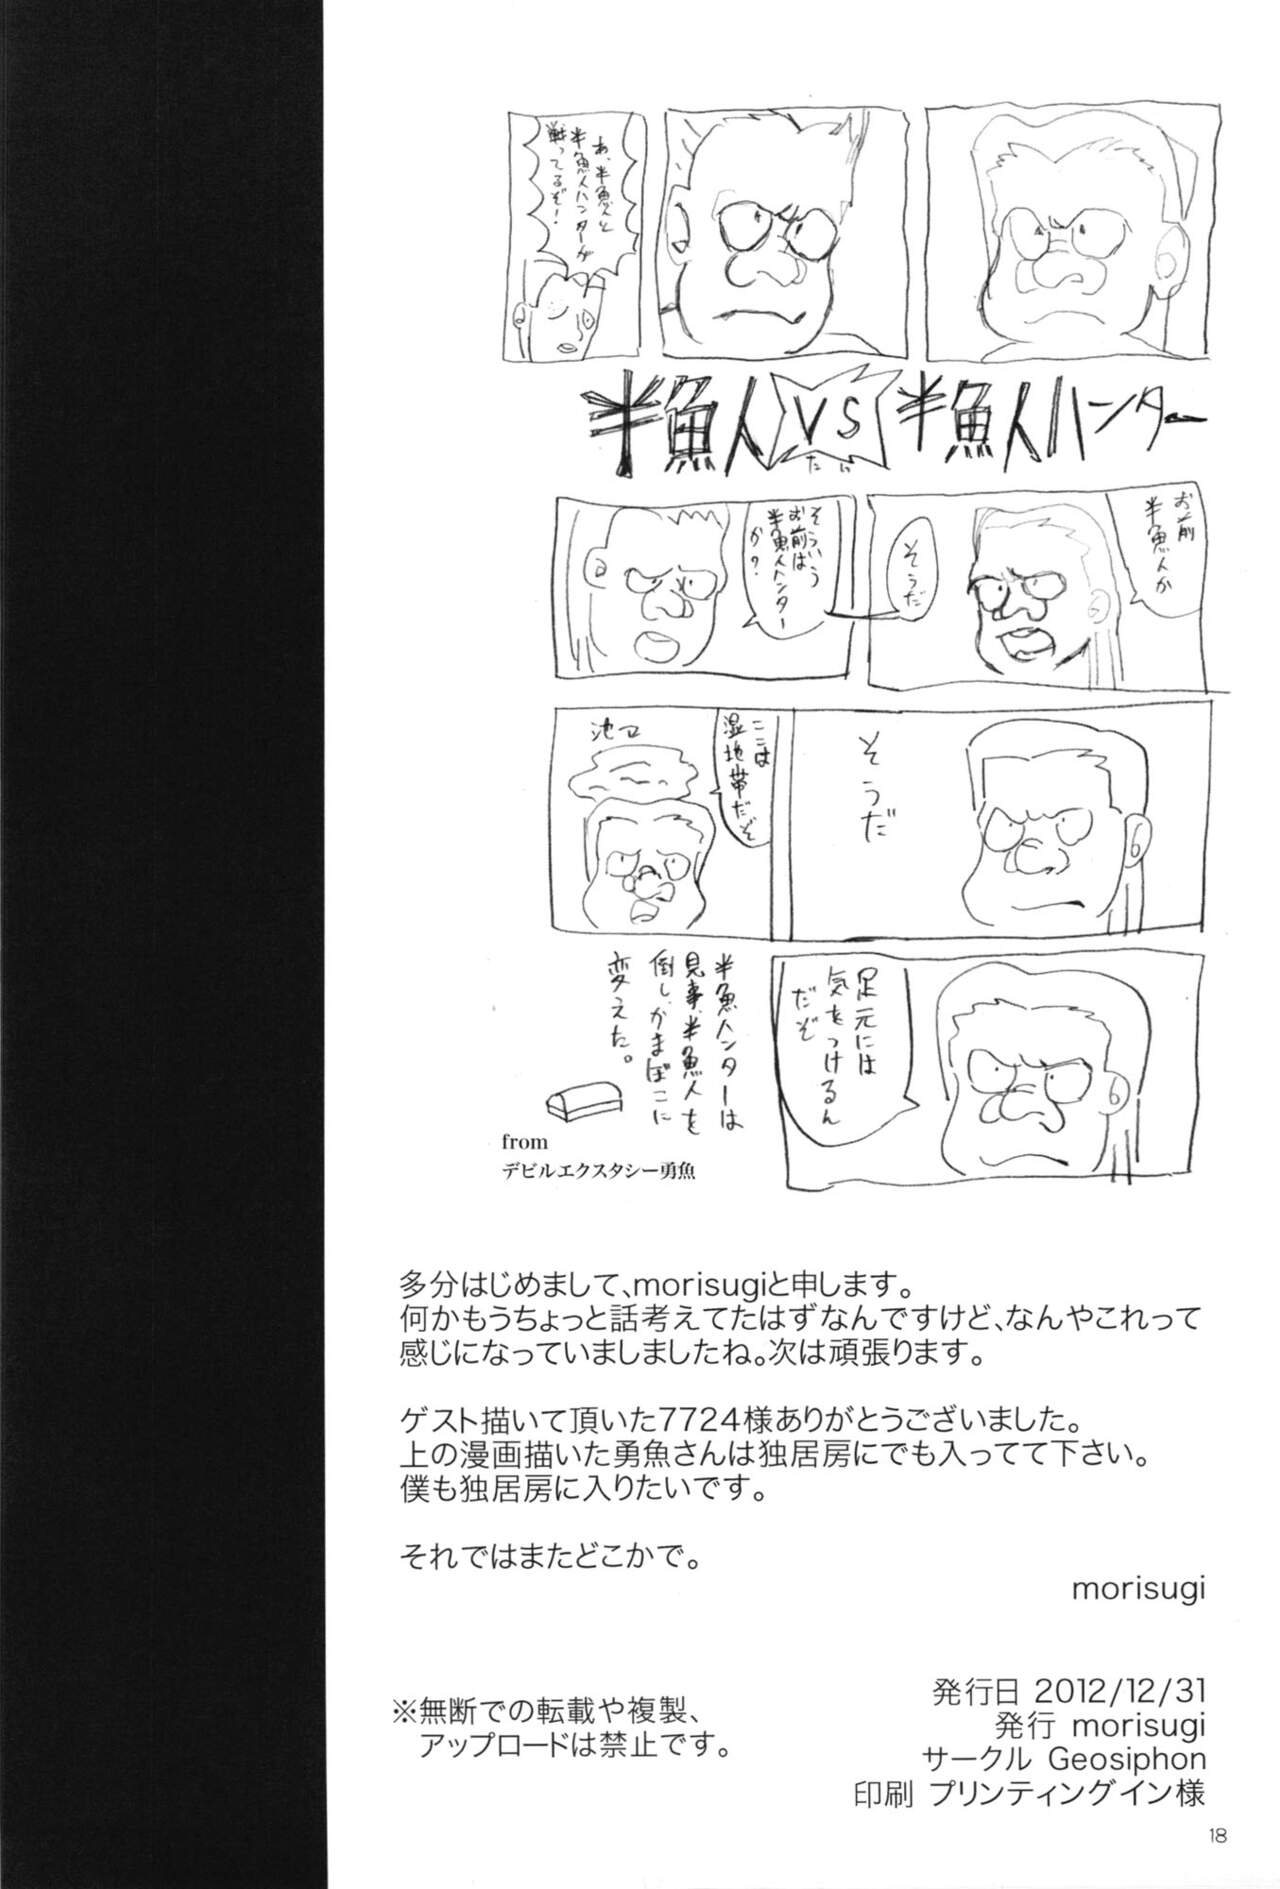 あ、半魚人と
半魚人ハンターが
戦ってるぞ！
半魚人VS半魚人ハンター
たい
お前
半魚人か
そうだ
そういう
お前は
半魚人ハンター
か？
そうだ
ここは
湿地帯だぞ
足元には
気をつけるん
だぞ
半魚人ハンターは
見事、半魚人を
倒し、かまぼこに
変えた。
from
デビルエクスタシー勇魚
多分はじめまして、morisugiと申します。
何かもうちょっと話考えてたはずなんですけど、なんやこれって
感じになっていましましたね。次は頑張ります。
ゲスト描いて頂いた7724様ありがとうございました。
上の漫画描いた勇魚さんは独居房にでも入ってて下さい。
僕も独居房に入りたいです。
それではまたどこかで。
morisugi
※無断での転載や複製、
アップロードは禁止です。
発行日 2012/12/31
発行 morisugi
サークル Geosiphon
印刷 プリンティングイン様
18